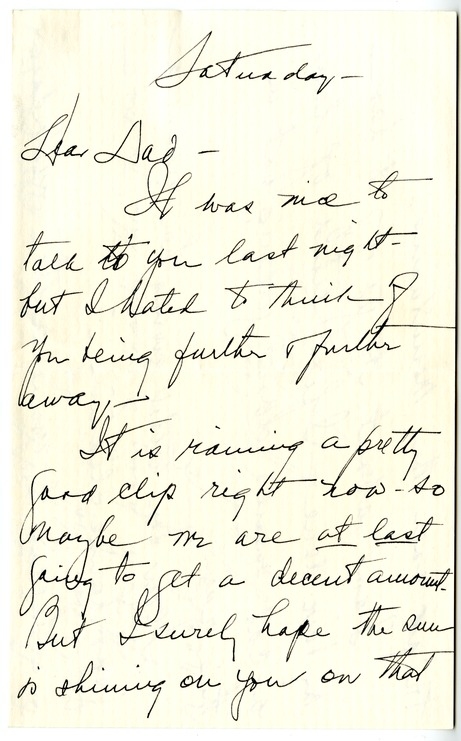 Saturday —
Dear Dad —
It was nice to
talk to you last night —
but I hated to think of
you being further & further
away, —
It is raining a pretty
good clip right now - so
maybe we are at last
going to get a decent amount -
But I surely hope the sun
is shining on you on that